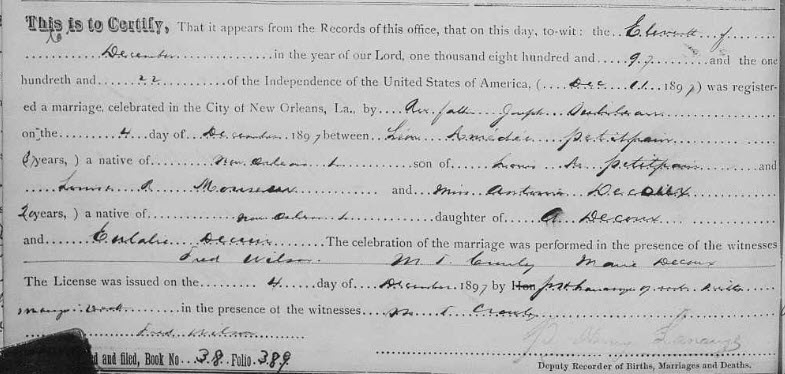 This is to Certify, That it appears from the Records of this office, that on this day, to-wit: the Eleventh of
December in the year of our Lord, one thousand eight hundred and 97 and the one
hundreth and 22 of the Independence of the United States of America, ( Dec 11 1897) was register-
ed a marriage, celebrated in the City of New Orleans, La., by Rev. father Joseph
on the 4 day of December 1897 between Léon Amédée Petitpain
years, ) a native of New Orleans La son of Louis A. Petitpain and
Louisa A. and Miss Decoux
20 years, ) a native of New Orleans La daughter of A Decoux
and Eulalie Decoux The celebration of the marriage was performed in the presence of the witnesses
Fred Wilson M T Marie Decoux
The License was issued on the 4 day of December 1897 by Hon
in the presence of the witnesses M T
Fred Wilson
P. Henry
d and filed, Book No 38 Folio 389
Deputy Recorder of Births, Marriages and Deaths.